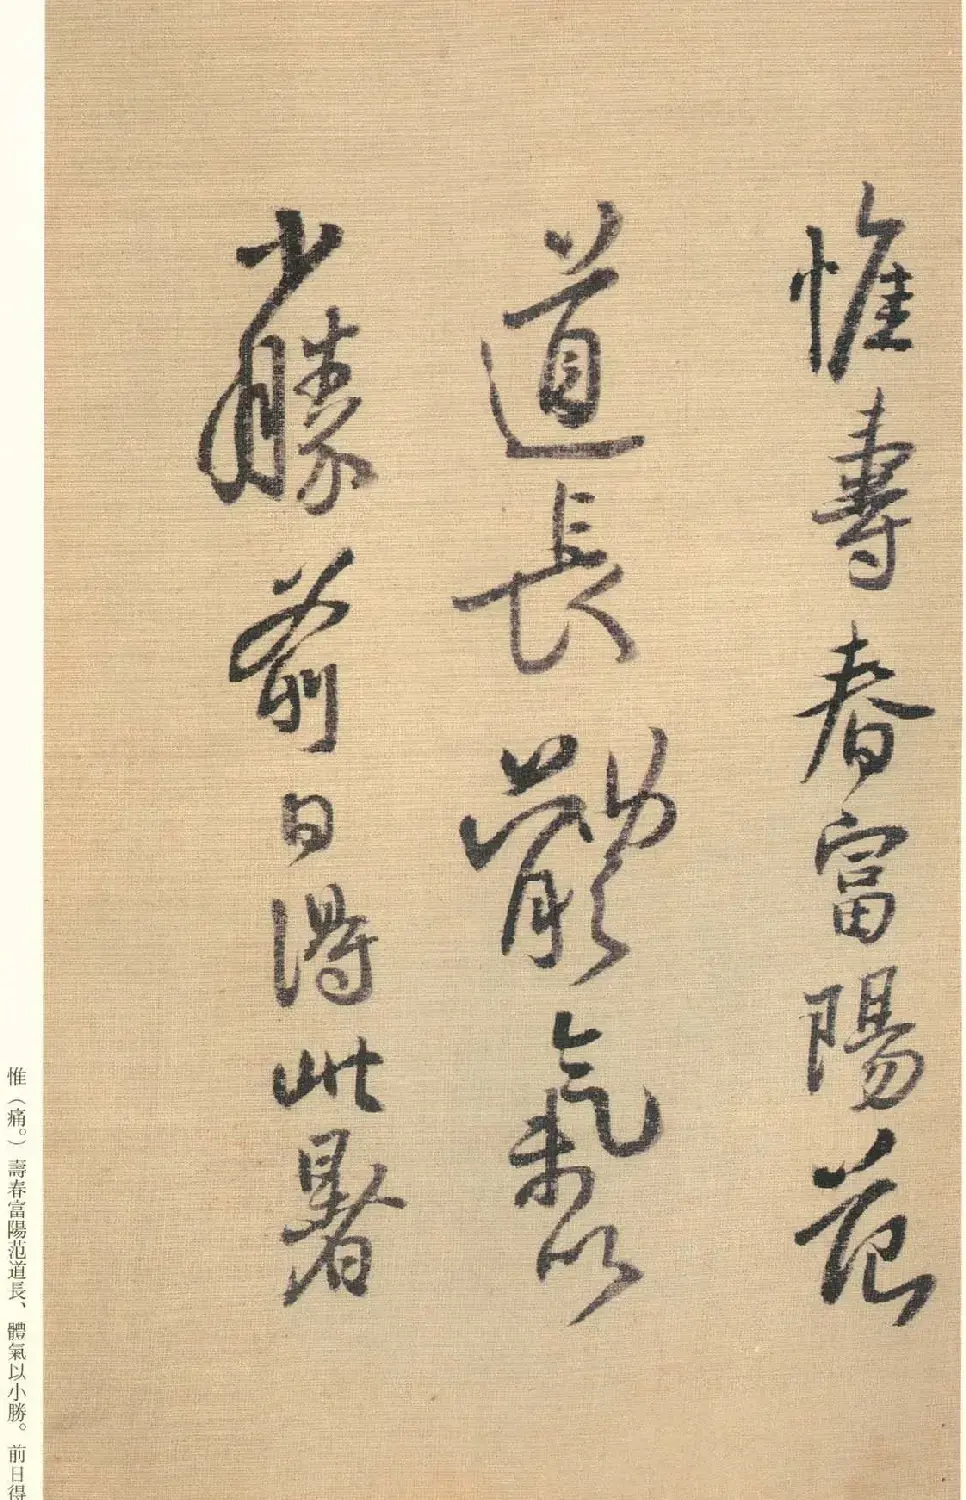 惟壽春富陽范
道長體氣以
少勝前日得此暑
惟（痛。）壽春富陽范道長、體氣以小勝。前日得